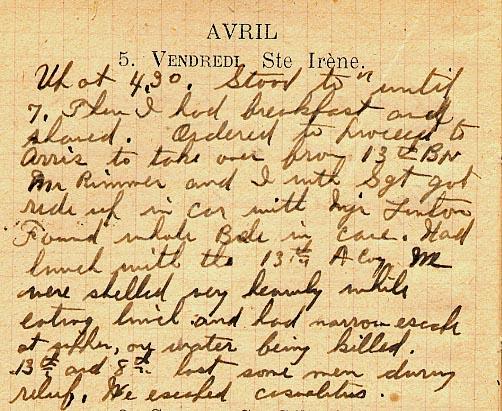 AVRIL
5. VENDREDI Ste Irène.
Up at 4.30. "Stood to" until
7. Then I had breakfast and
shaved. Ordered to proceed to
Arras to take over from 13th Bn
Mr Rimmer and I with Sgt got
ride up in car with Mjr
Found whole Bde in cave. Had
lunch with the 13th A Coy. We
were shelled very heavily while
eating lunch and had narrow escape
at our water being killed.
13th and 8th lost some men during
relief. We escaped casualties.